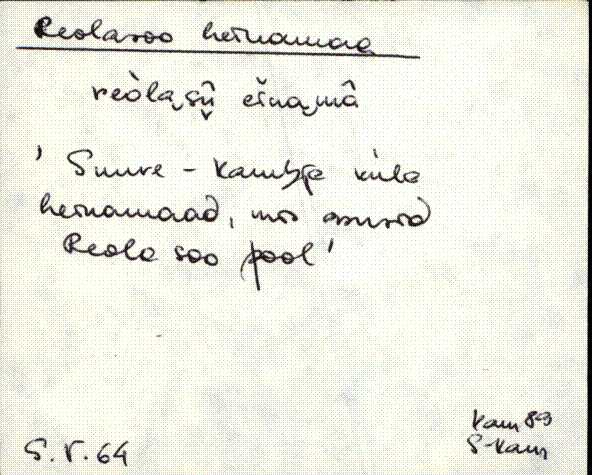 Reolasoo heinamaa
reòla‿sū̬ eina‿mâ
' Suure-Kambja küla
heinamaad, mis asusid
Reola soo pool '
S.V. 64
Kam 89
S-Kam